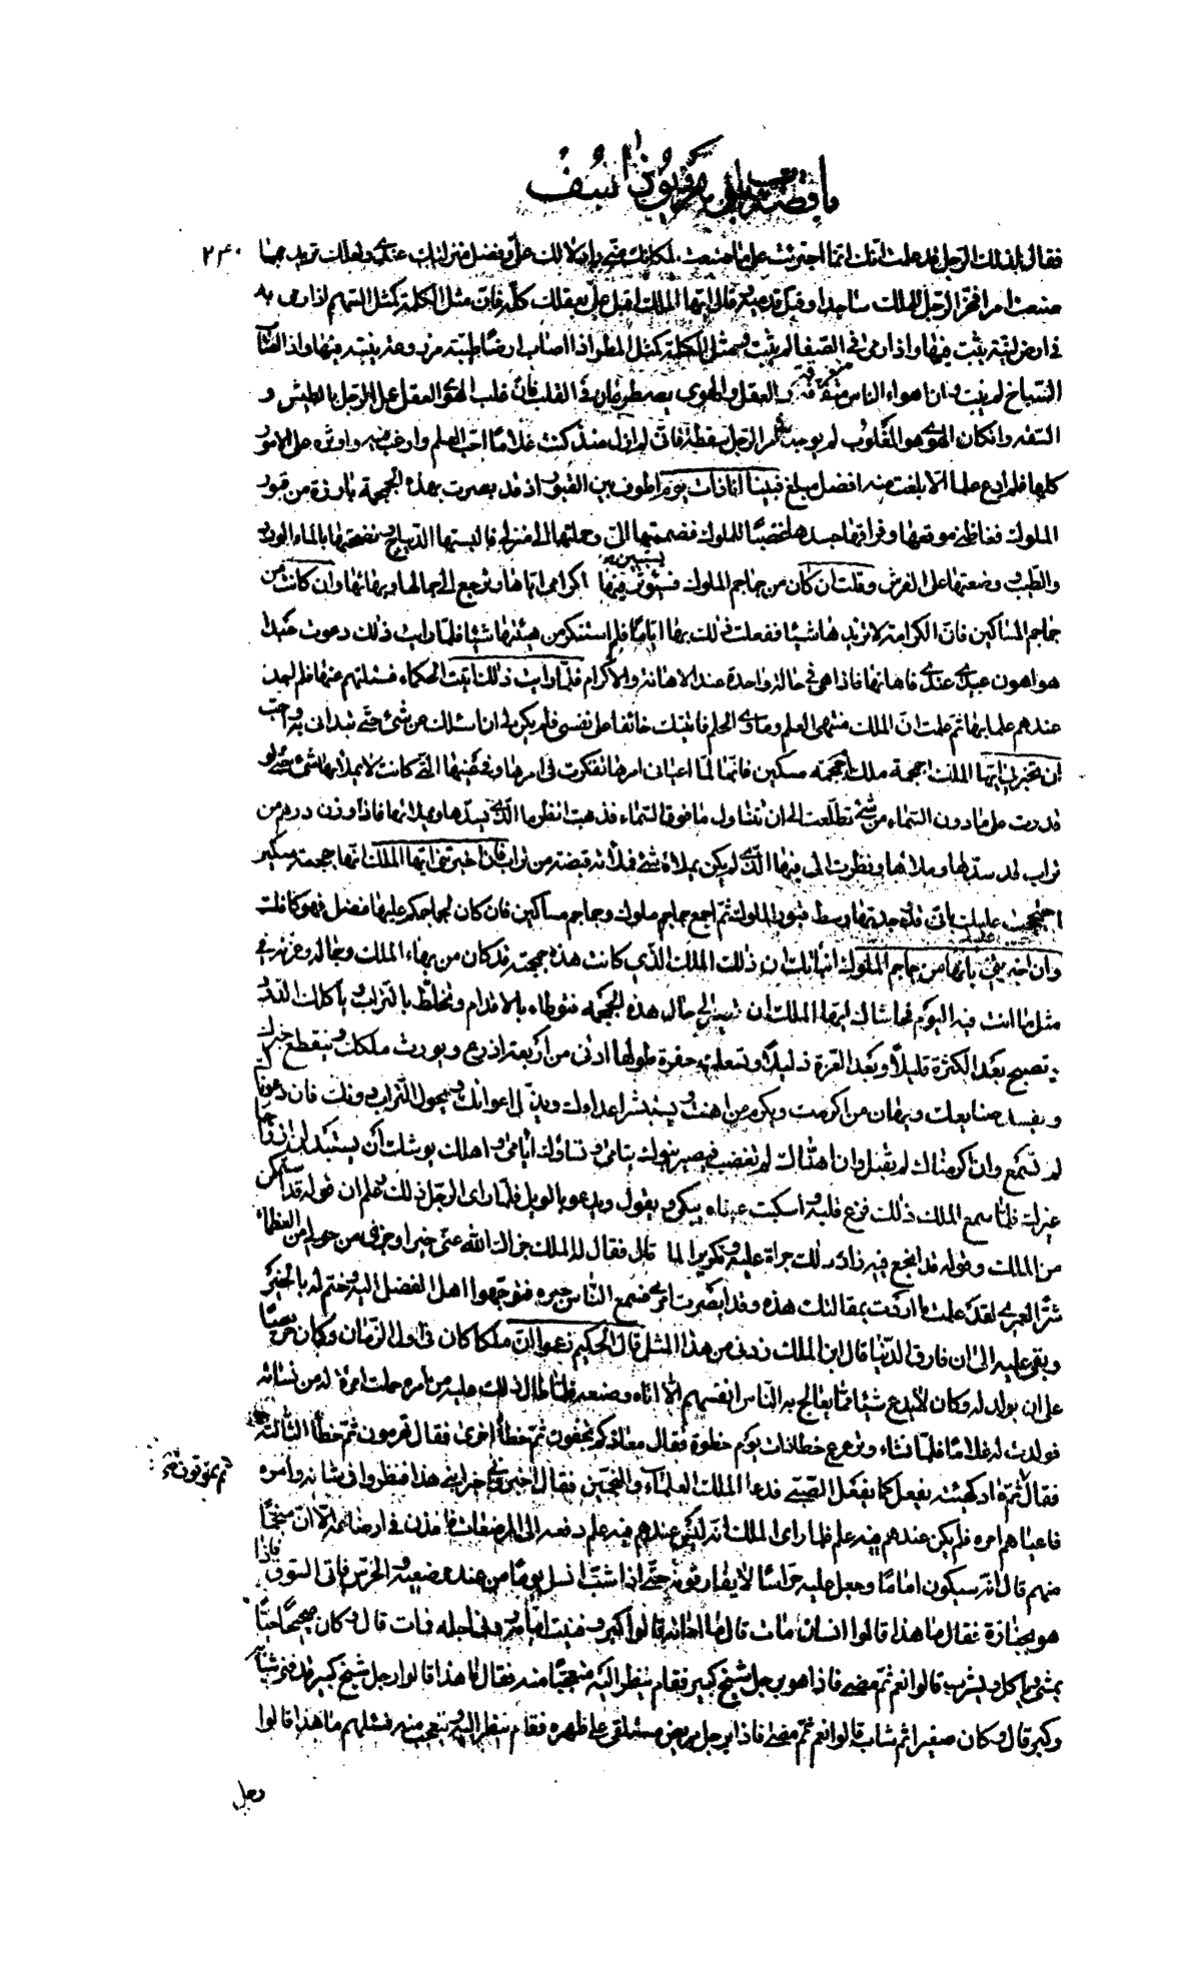 باب قصة بلوهر ويوذاسف
٢٤٠
فقال له ذلك الرجل قد علمت انك انما اجترئت على ما صنعت لمكانك مني وادلالك علي وفضل منزلتك عندي ولعلك تريد بما
صنعت امرا فخر الرجل للملك ساجدا وقبل قدميه وقال ايها الملك اقبل علي بعقلك كله فان مثل الكلمة كمثل السهم اذا رمي به
في ارض لينة يثبت فيها واذا رمي في الصفا لم يثبت ومثل الكلمة كمثل المطر اذا اصاب ارضا طيبة مزروعة ينبت فيها واذا اصاب
السباخ لم ينبت وان اهواء الناس متفرقة والعقل والهوى يصطرعان في القلب فان غلب الهوى العقل عمل الرجل بالطيش و
السفه وان كان الهوى هو المغلوب لم يوجد في امر الرجل سقطة فاني لم ازل منذ كنت غلاما احب العلم وارغب فيه واوثره على الامور
كلها فلم ادع علما الا بلغت منه افضل مبلغ فبينا انا ذات يوم اطوف بين القبور اذ قد بصرت بهذه الجمجمة بارزة من قبور
الملوك فغاظني موقعها وفراقها جسدها غضبا للملوك فضممتها الي وحملتها الى منزلي فالبستها الديباج ونضحتها بالماء الورد
والطيب ووضعتها على الفرش وقلت ان كان من جماجم الملوك فسيؤثر فيها اكرامي اياها وترجع الى جمالها وبهائها وان كانت من
جماجم المساكين فان الكرامة لا تزيدها شيئا ففعلت ذلك بها اياما فلم استنكر من هيئتها شيئا فلما رايت ذلك دعوت عبدا
هو اهون عبيدي عندي فاهانها فاذا هي في حالة واحدة عند الاهانة والاكرام فلما رايت ذلك اتيت الحكماء فسئلتهم عنها فلم اجد
عندهم علما بها ثم علمت ان الملك منتهى العلم وماوى الحلم فاتيتك خائفا على نفسي فلم يكن لي ان اسئلك عن شيء حتى تبداني به واحب
ان تخبرني ايها الملك اجمجمة ملك ام جمجمة مسكين فانها لما اعياني امرها تفكرت في امرها وفي عينها التي كانت لا يملاها شيء حتى لو
قدرت على ما دون السماء من شيء تطلعت الى ان تتناول ما فوق السماء فذهبت انظر ما الذي يسدها ويملاها فاذا وزن درهم من
تراب قد سدها وملاها ونظرت الى فيها الذي لم يكن يملاه شيء فملاته قبضة من تراب فان اخبرتني ايها الملك انها جمجمة مسكين
احتججت عليك باني قد وجدتها وسط قبور الملوك ثم اجمع جماجم ملوك وجماجم مساكين فان كان لجماجمكم عليها فضل فهو كما قلت
وان اخبرتني بانها من جماجم الملوك انباتك ان ذلك الملك الذي كانت هذه جمجمته قد كان من بهاء الملك وجماله وعزته في
مثل ما انت فيه اليوم فحاشاك ايها الملك ان تصير الى حال هذه الجمجمة فتوطاء بالاقدام وتخلط بالتراب ويأكلك الدود
وتصبح بعد الكثرة قليلا وبعد العزة ذليلا وتسعك حفرة طولها ادنى من اربعة اذرع ويورث ملكك وينقطع خبرك
ويفسد صنايعك ويهان من اكرمت ويكرم من اهنت ويستبشر اعداؤك ويذل اعوانك ويحول التراب دونك فان دعوناك
لم تسمع وان اكرمناك لم تقبل وان اهناك لم تغضب فيصير بنوك يتامى ونساؤك ايامى واهلك يوشك ان يستبدلن ازواجا
غيرك فلما سمع الملك ذلك فزع قلبه وانسكبت عيناه يبكي ويقول ويدعو بالويل فلما راى الرجل ذلك علم ان قوله قد استمكن
من الملك وقوله قد انجع فيه زاده ذلك جراة عليه وتكريرا لما قال فقال له الملك جزاك الله عني خيرا وجزى من حولي من العظماء
شرا لعمري لقد علمت ما اردت بمقالتك هذه وقد ابصرت امري فسمع الناس خبره فتوجهوا اهل الفضل اليه وختم له بالخير
وبقي عليه الى ان فارق الدنيا قال ابن الملك زدني من هذا المثل قال الحكيم زعموا ان ملكا كان في اول الزمان وكان حريصا
على ان يولد له وكان لا يدع شيئا مما يعالج به الناس انفسهم الا اتاه وصنعه فلما طال ذلك عليه من امره حملت امرأة له من نسائه
فولدت له غلاما فلما نشاء وترعرع خطا ذات يوم خطوة فقال معادكم تجفون ثم خطا اخرى فقال تهرمون ثم خطا الثالثة
ثم تموتون ثم
فقال ثم عاد كهيئته يفعل كما يفعل الصبي فدعا الملك العلماء والمنجمين فقال اخبروني خبر ابني هذا فنظروا في شانه وامره
فاعياهم امره فلم يكن عندهم فيه علم فلما راى الملك انه ليس عندهم فيه علم دفعه الى المرضعات فاخذن في ارضاعه الا ان منجما
منهم قال انه سيكون اماما وجعل عليه حراسا لا يفارقونه حتى اذا شب انسل يوما من عند مرضعيه والحرس فاتى السوق فاذا
هو بجنازة فقال ما هذا قالوا انسان مات قال ما اماته قالوا كبر وفنيت ايامه ودنى اجله فمات قال وكان صحيحا حيا
يمشي وياكل ويشرب قالوا نعم ثم مضى فاذا هو برجل شيخ كبير فقام ينظر اليه متعجبا منه فقال ما هذا قالوا رجل شيخ كبير قد فنى شبابه
وكبر قال وكان صغيرا ثم شاب قالوا نعم ثم مضى فاذا برجل مريض مستلقي على ظهره فقام ينظر اليه ويتعجب منه فسئلهم ما هذا قالوا
رجل